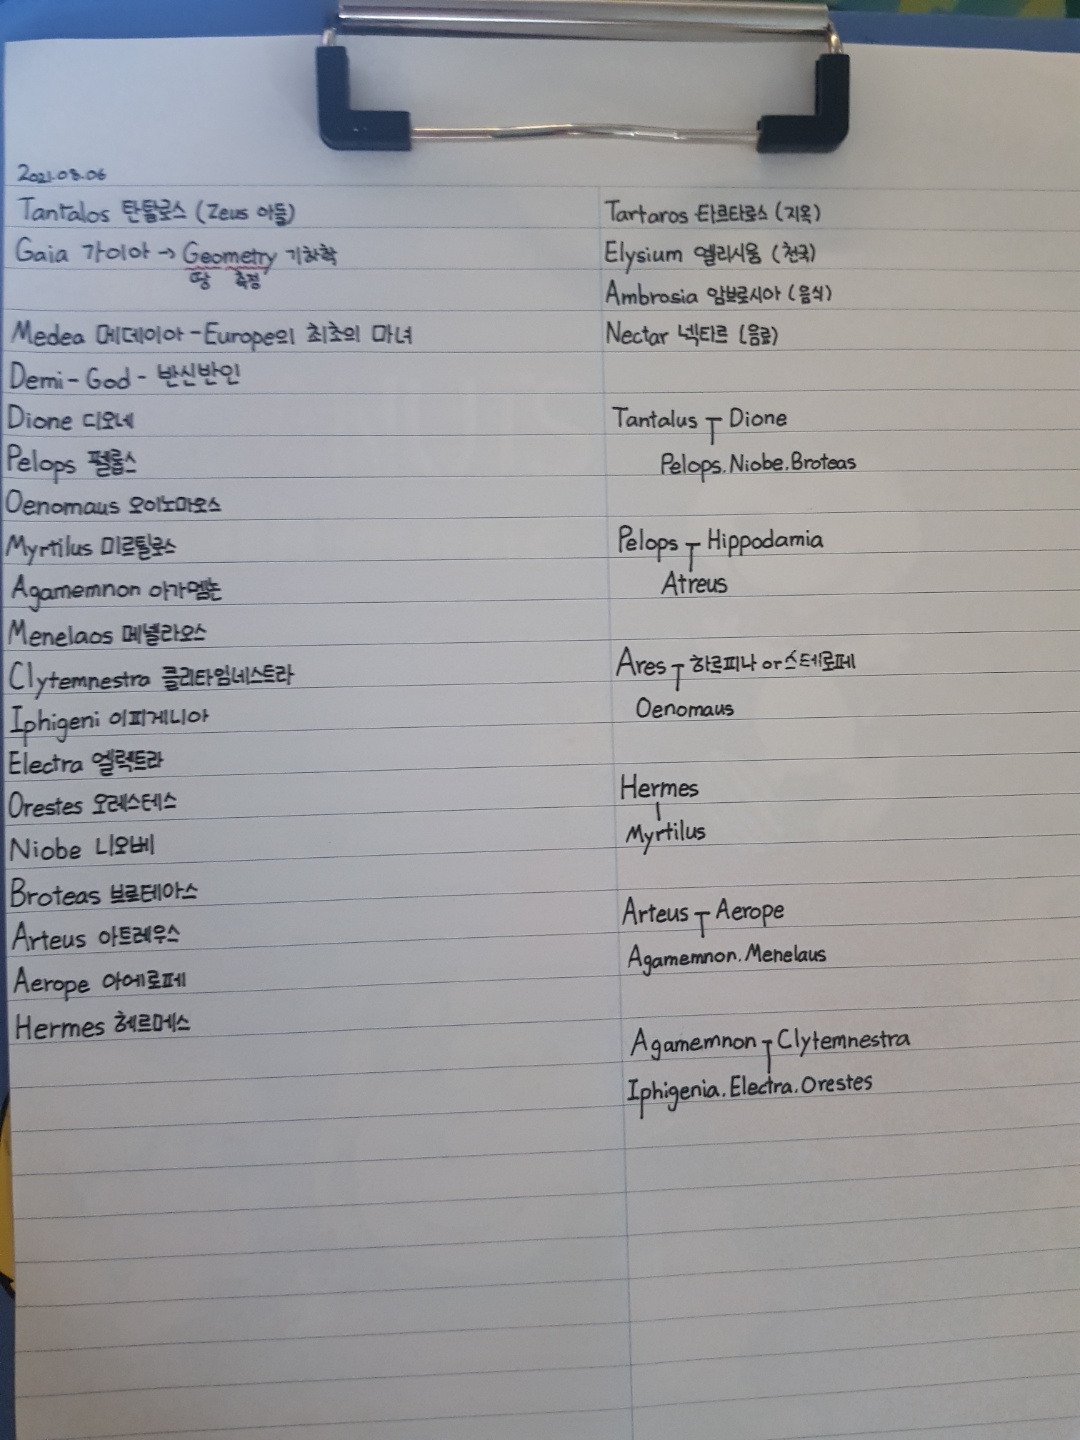 2021.08.06
Tantalos 탄탈로스 (Zeus 아들)
Gaia 가이아 → Geometry 기하학
땅 측정
Medea 메데이아 - Europe의 최초의 마녀
Demi - God - 반신반인
Dione 디오네
Pelops 펠롭스
Oenomaus 오이노마오스
Myrtilus 미르틸로스
Agamemnon 아가멤논
Menelaos 메넬라오스
Clytemnestra 클리타임네스트라
Iphigeni 이피게니아
Electra 엘렉트라
Orestes 오레스테스
Niobe 니오베
Broteas 브로테아스
Arteus 아트레우스
Aerope 아에로페
Hermes 헤르메스
Tartaros 타르타로스 (지옥)
Elysium 엘리시움 (천국)
Ambrosia 암브로시아 (음식)
Nectar 넥타르 (음료)
Tantalus Dione
Pelops. Niobe. Broteas
Pelops Hippodamia
Atreus
Ares 하르피나 or 스테로페
Oenomaus
Hermes
Myrtilus
Arteus Aerope
Agamemnon. Menelaus
Agamemnon Clytemnestra
Iphigenia. Electra. Orestes